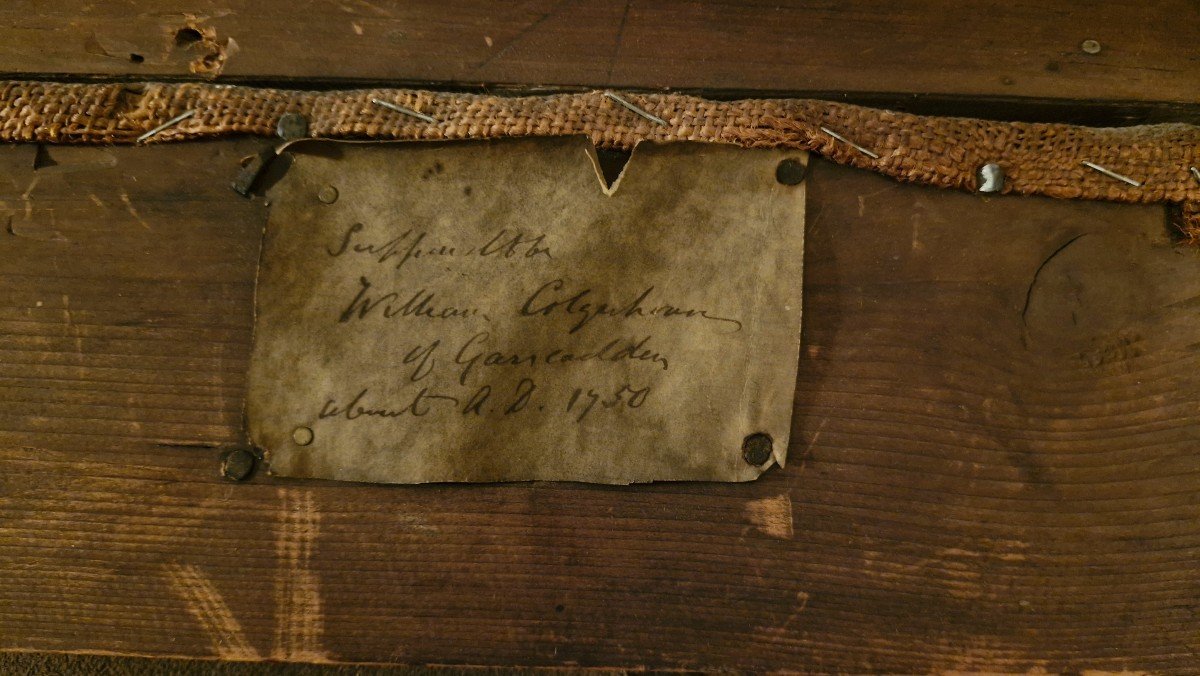 Suppos. to be
William Colquhoun
of Garscadden
about A.D. 1750